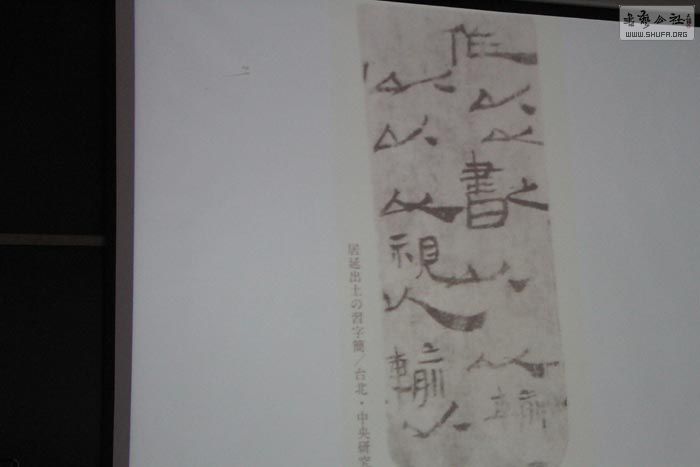 以以書之以以輸
以以以視人輸以
居延出土の習字簡／台北・中央研究
公社
WWW.SHUFA.ORG